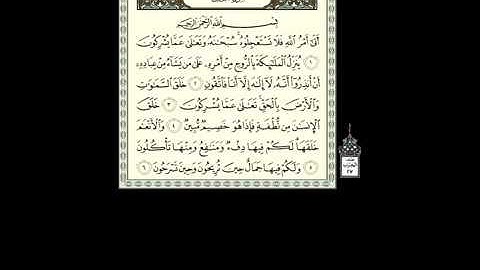 بِسْمِ اللَّهِ الرَّحْمَٰنِ الرَّحِيمِ
أَتَىٰ أَمْرُ اللَّهِ فَلَا تَسْتَعْجِلُوهُ سُبْحَانَهُ وَتَعَالَىٰ عَمَّا يُشْرِكُونَ
١ يُنَزِّلُ الْمَلَائِكَةَ بِالرُّوحِ مِنْ أَمْرِهِ عَلَىٰ مَن يَشَاءُ مِنْ عِبَادِهِ
أَنْ أَنذِرُوا أَنَّهُ لَا إِلَٰهَ إِلَّا أَنَا فَاتَّقُونِ ٢ خَلَقَ السَّمَاوَاتِ
وَالْأَرْضَ بِالْحَقِّ تَعَالَىٰ عَمَّا يُشْرِكُونَ ٣ خَلَقَ
الْإِنسَانَ مِن نُّطْفَةٍ فَإِذَا هُوَ خَصِيمٌ مُّبِينٌ ٤ وَالْأَنْعَامَ
خَلَقَهَا لَكُمْ فِيهَا دِفْءٌ وَمَنَافِعُ وَمِنْهَا تَأْكُلُونَ
٥ وَلَكُمْ فِيهَا جَمَالٌ حِينَ تُرِيحُونَ وَحِينَ تَسْرَحُونَ ٦
٢٧